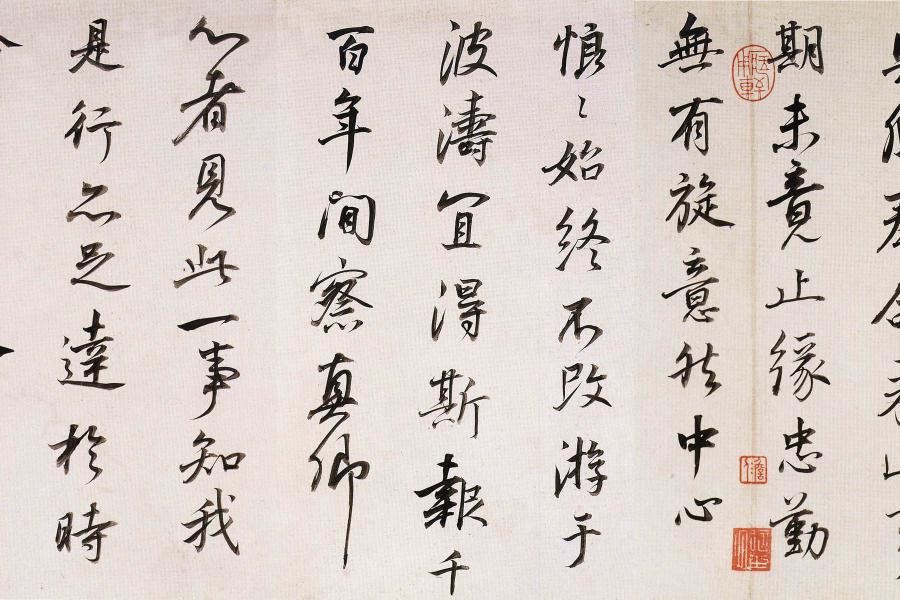 期未竟止緣忠勤
無有旋意然中心
悢〻始終不改游于
波濤宜得斯報千
百年間察真卿
心者見此一事知我
是行亦足達於時